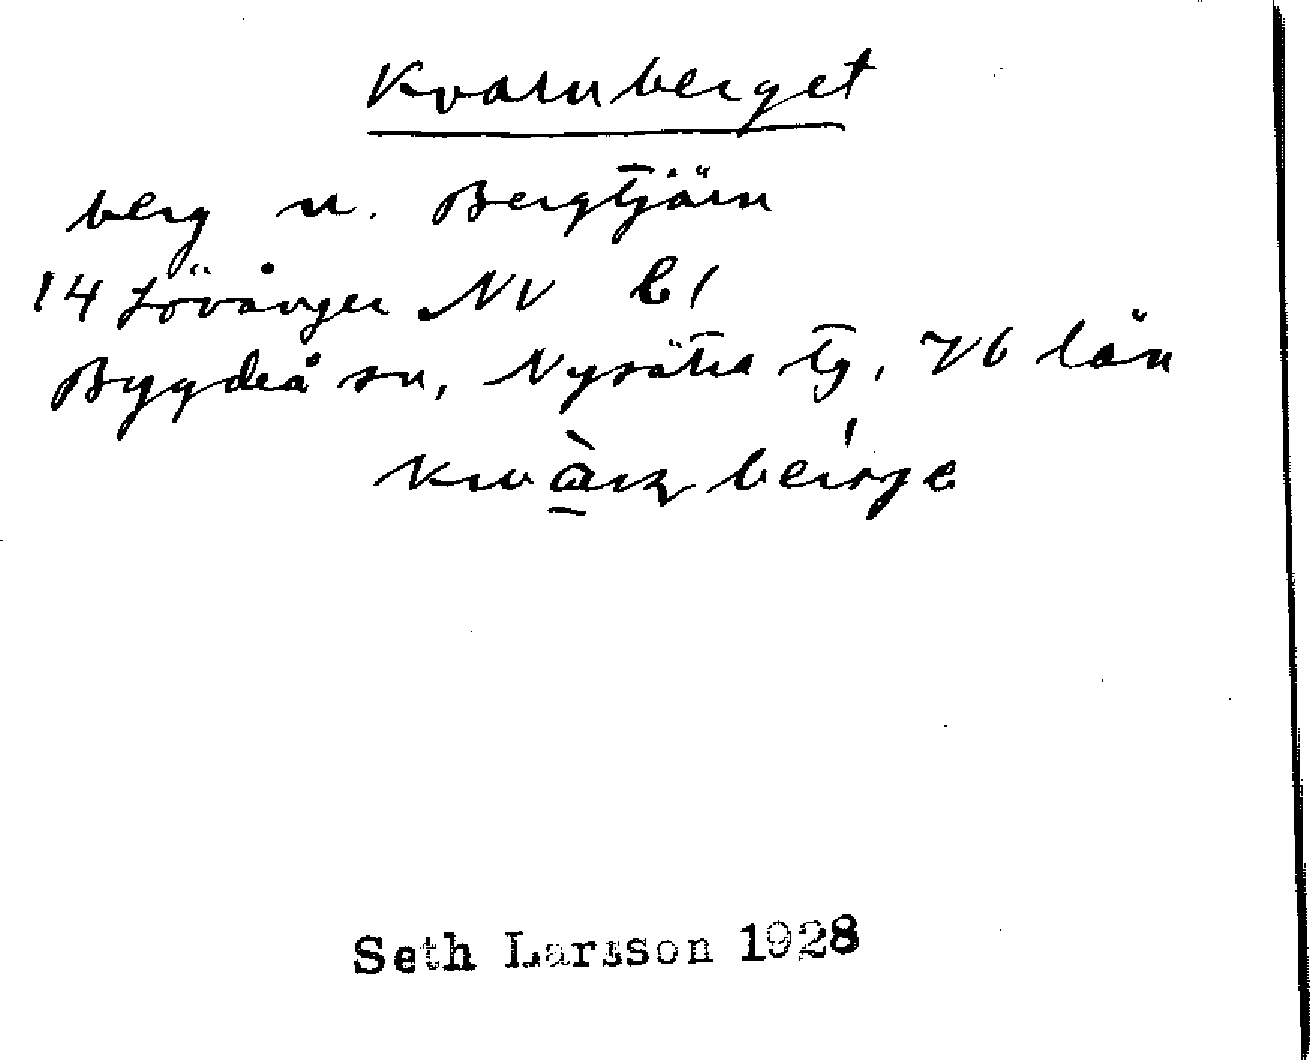 Kvarnberget
berg n. Bergtjärn
14 Lövånger NV C1
Bygdeå sn, Nysätra tg, Vb län
Seth Larsson 1928